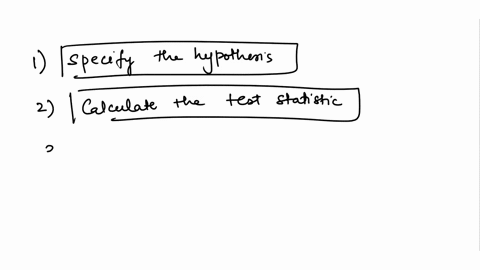 1) Specify the hypothesis
2) Calculate the test statistic